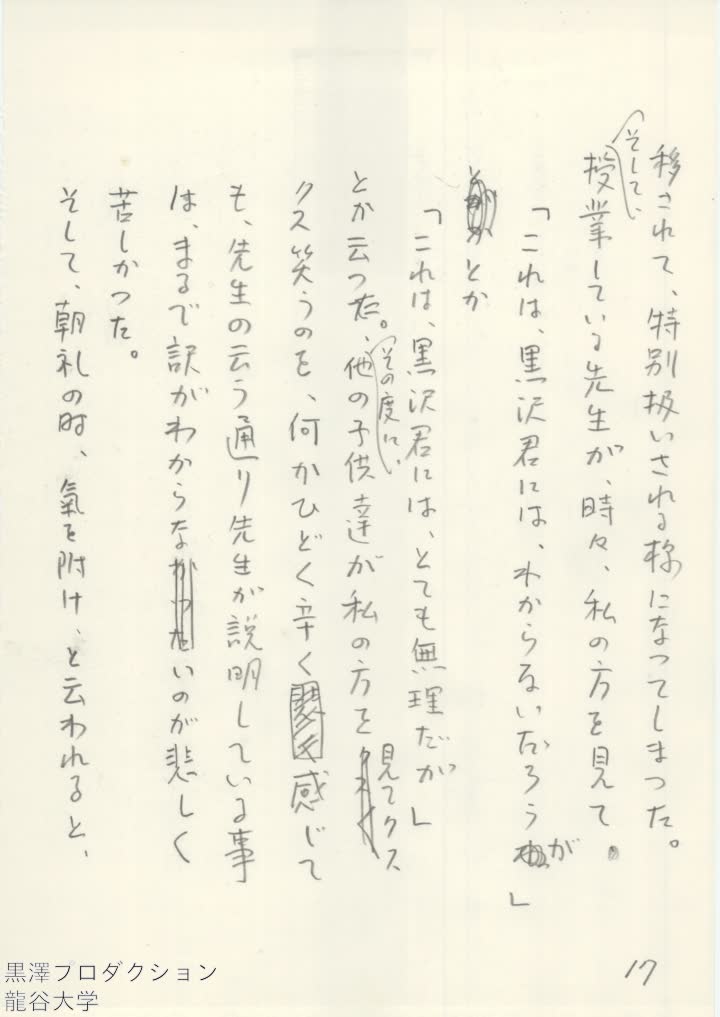 移されて、特別扱いされる様になつてしまつた。
そして、
授業している先生が、時々、私の方を見て、
「これは、黒沢君には、わからないだろうが」
とか
「これは、黒沢君には、とても無理だが」
とか云つた。
その度に、
他の子供達が私の方を見てクス
クス笑うのを、何かひどく辛く感じて
も、先生の云う通り先生が説明している事
は、まるで訳がわからないのが悲しく
苦しかつた。
そして、朝礼の時、氣を附け、と云われると、
17
黒澤プロダクション
龍谷大学